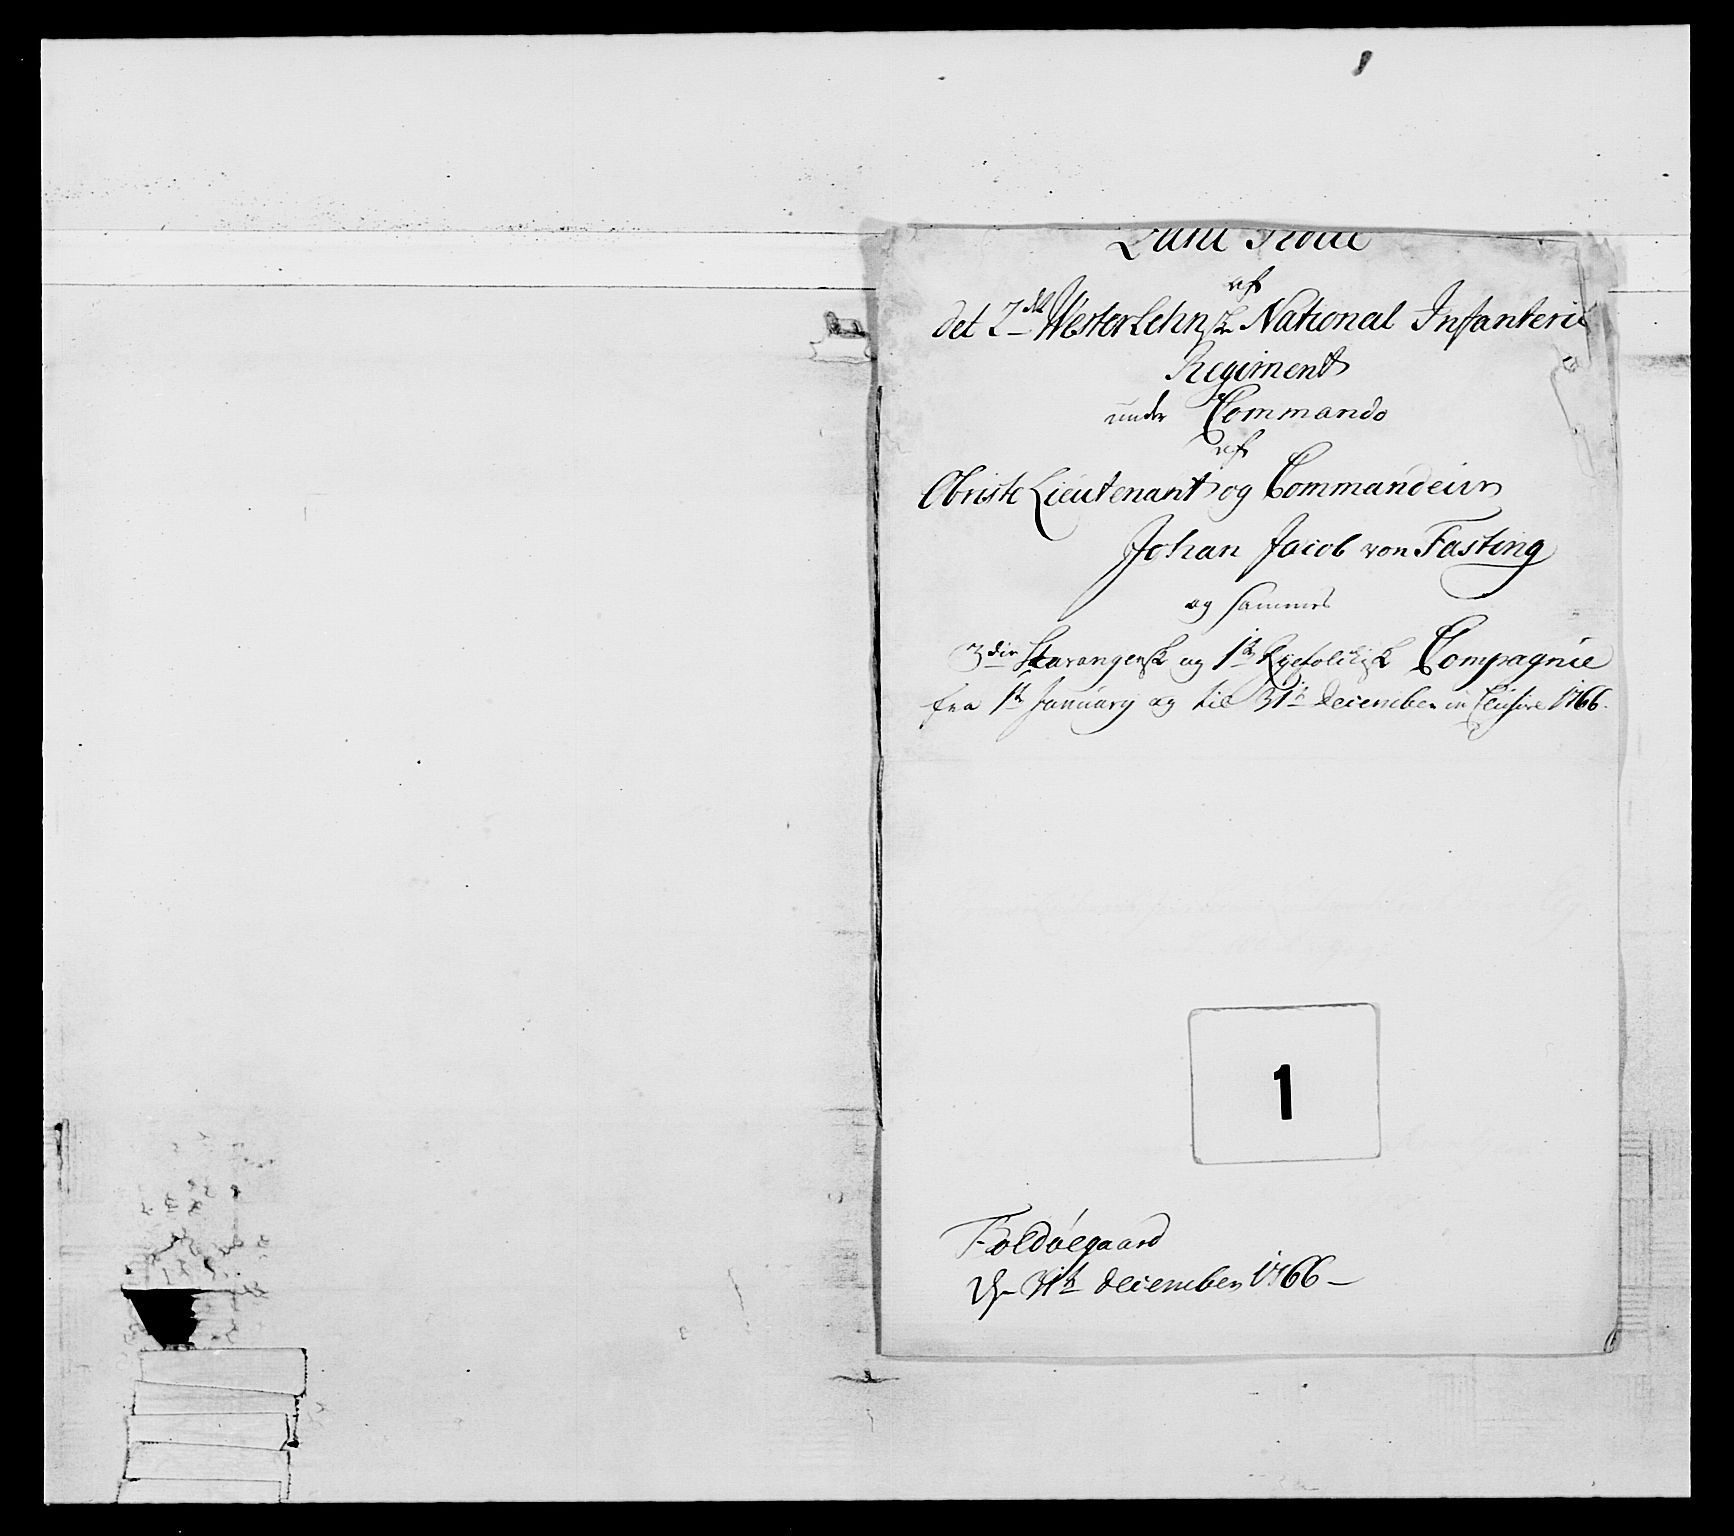 Land Rolle
af
det 2det Westerlehnske National Infanterie
Regiment
under Commando
af
Obriste Lieutenant og Commandeur
Johan Jacob von Fasting
og sammes
3die Stavangersk og 1te Ryefolchisk Compagnie
fra 1te January og til 31te December inclusive 1766.
1
Foldøegaard
d. 31te December 1766 –